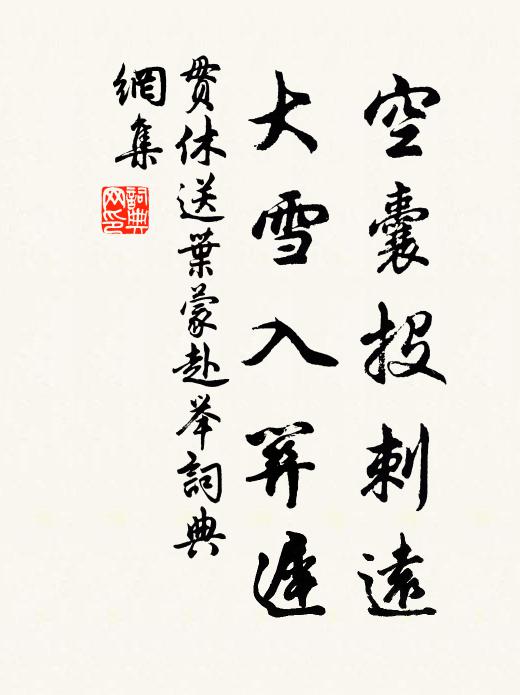 空囊投刺遠
大雪入關遲
貫休送葉蒙赴举詞典
網集
詞典
网印